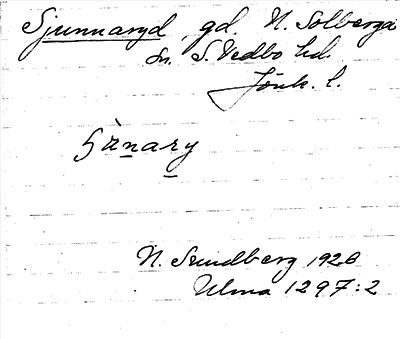 Sjunnaryd, gd. N. Solberga
sn. S. Vedbo hd.
Jönk. l.
N. Sundberg 1928
Ulma 1297:2